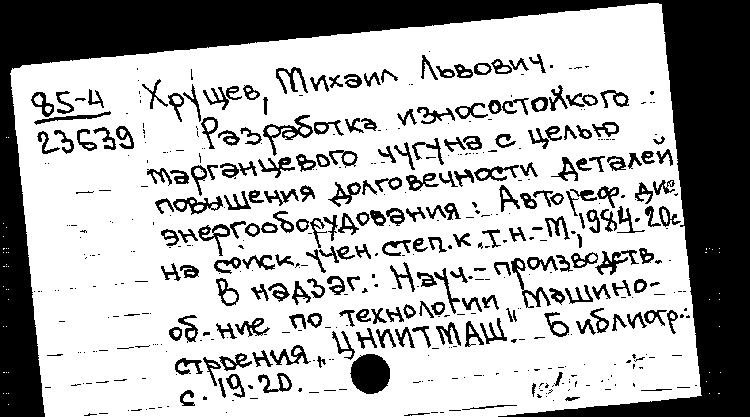 85-4
23639
Хрущев, Михаил Львович.
Разработка износостойкого
марганцевого чугуна с целью
повышения долговечности деталей
энергооборудования: Автореф. дис.
на соиск. учен. степ. к.т.н.-М., 1984-20с.
В надзаг.: Науч.-производств.
об-ние по технологии машино-
строения "ЦНИИТМАШ". Библиогр.:
с. 19-20.